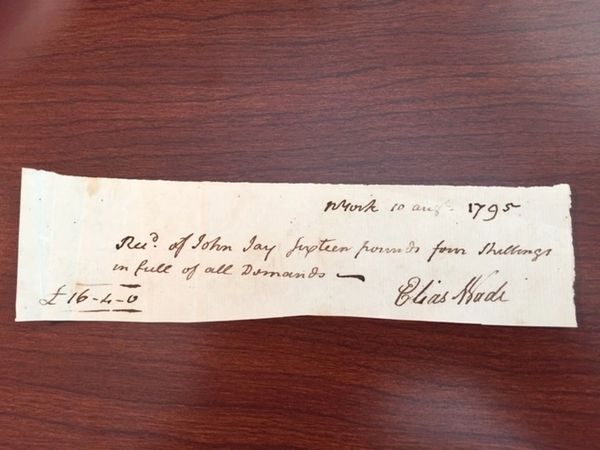 NYork 10 augt. 1795
Recd. of John Jay Sixteen pounds four Shillings
in full of all Demands —
£ 16-4-0
Elias Wade